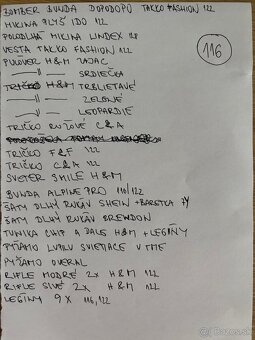 BOMBER BUNDA DOPODOPU TAKKO FASHION 122
MIKINA PLYŠ IDO 122
POLODLHÁ MIKINA LINDEX
VESTA TAKKO FASHION 122
PULÓVER H&M ZAJAC
—||— —— SRDIEČKA
TRIČKO H&M TRBLIETAVÉ
—||— —— ZELONÉ
—||— —— LEOPARDIE
TRIČKO RUŽOVÉ C&A
TRIČKO F&F 122
TRIČKO C&A 122
SVETER SMILE H&M
BUNDA ALPINE PRO 110/122
ŠATY DLHÝ RUKÁV SHEIN + BARETKA
ŠATY DLHÝ RUKÁV BREWDON
TUNIKA CWIP A DALE H&M + LEGÍNY
PYŽAMO LUPILU SVIETIACE V TME
PYŽAMO OVERAL
RIFLE MODRÉ 2X H&M 122
RIFLE SIVÉ 2X H&M 122
LEGÍNY 9X 116,122
116
bazos.sk